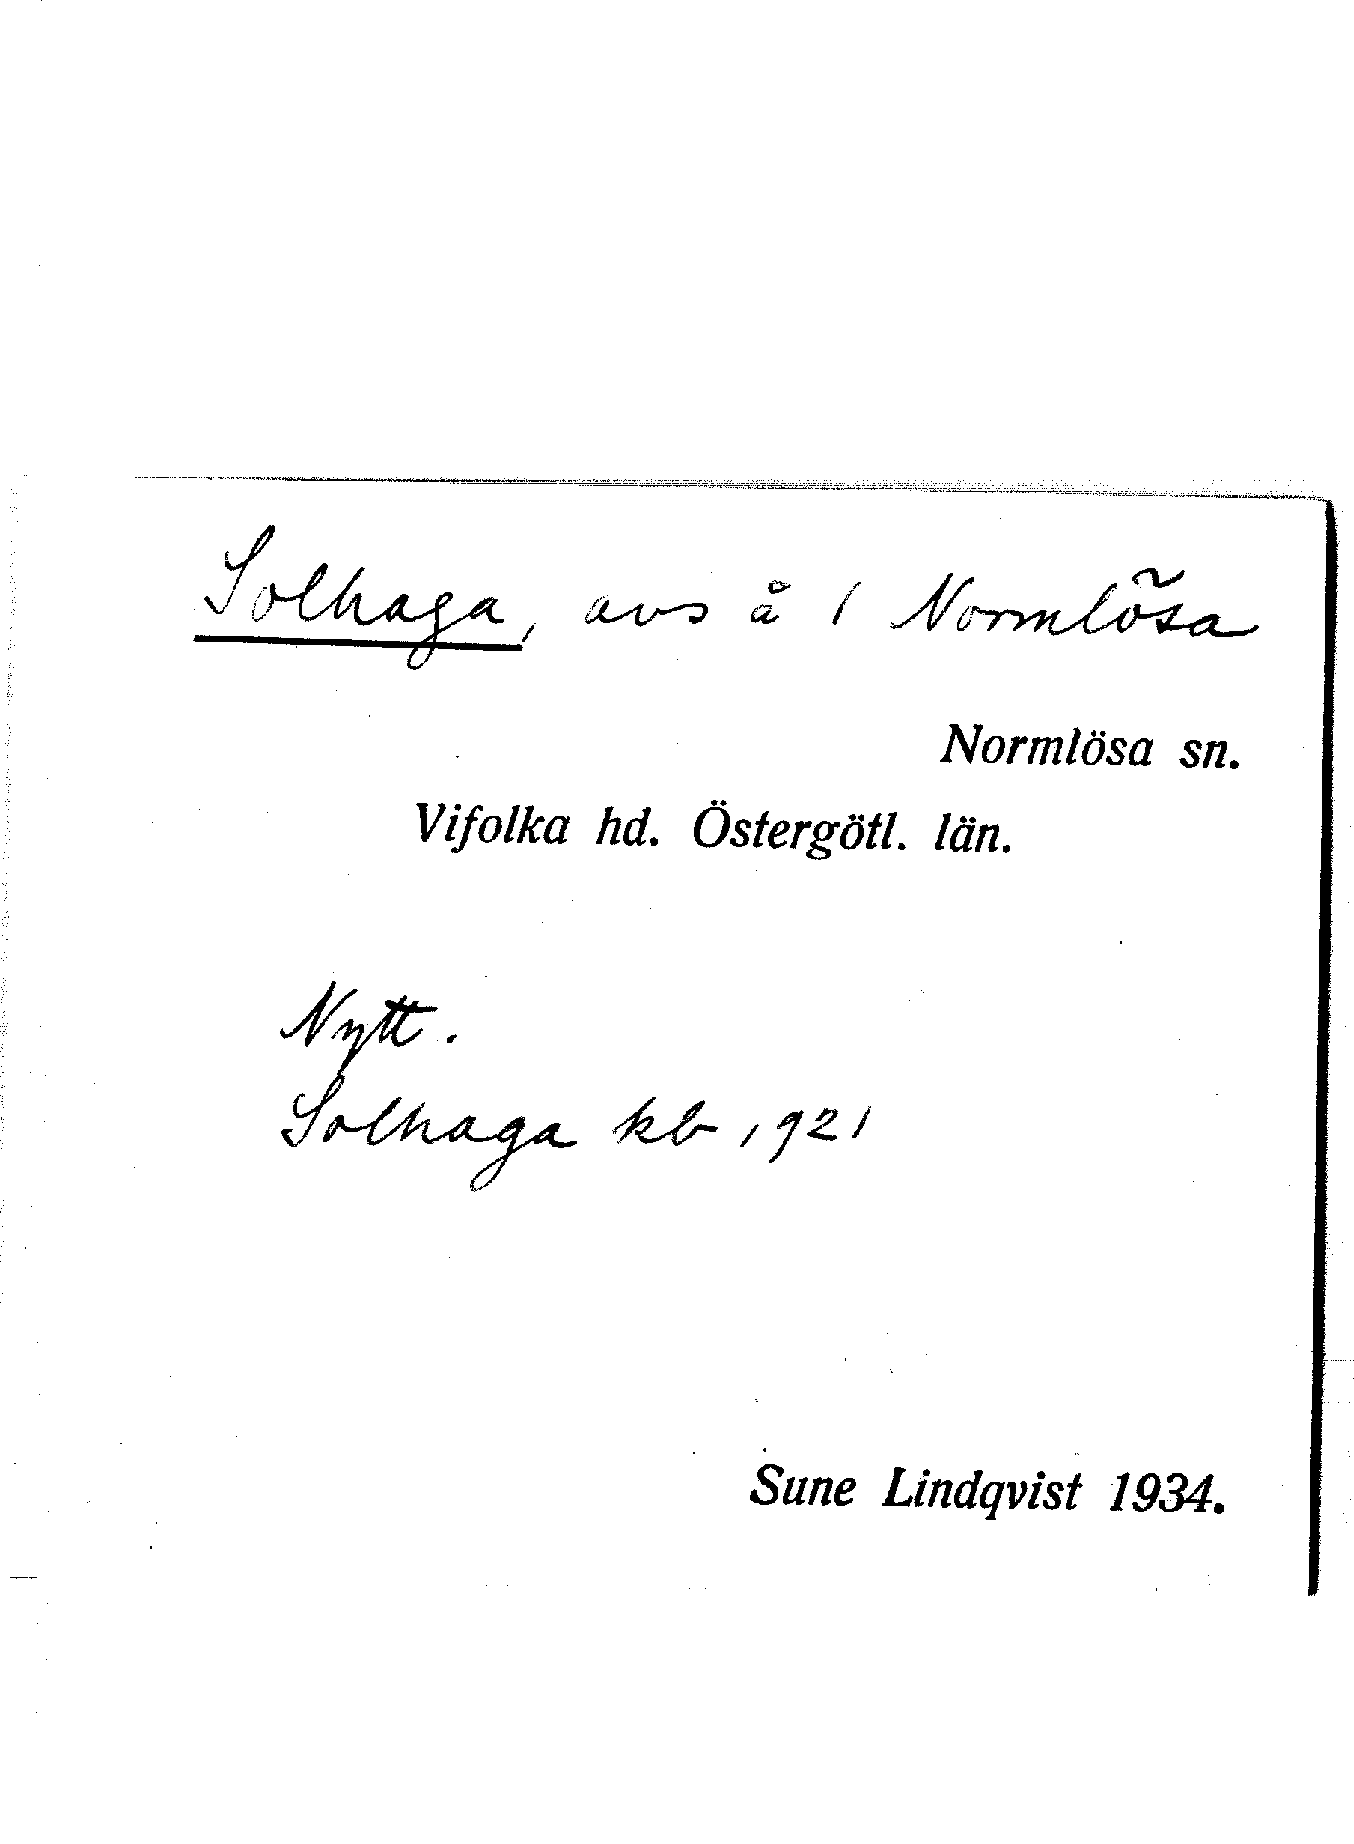 Solhaga, avs å 1 Normlösa
Normlösa sn.
Vifolka hd. Östergötl. län.
Nytt.
Solhaga kb 1921
Sune Lindqvist 1934.